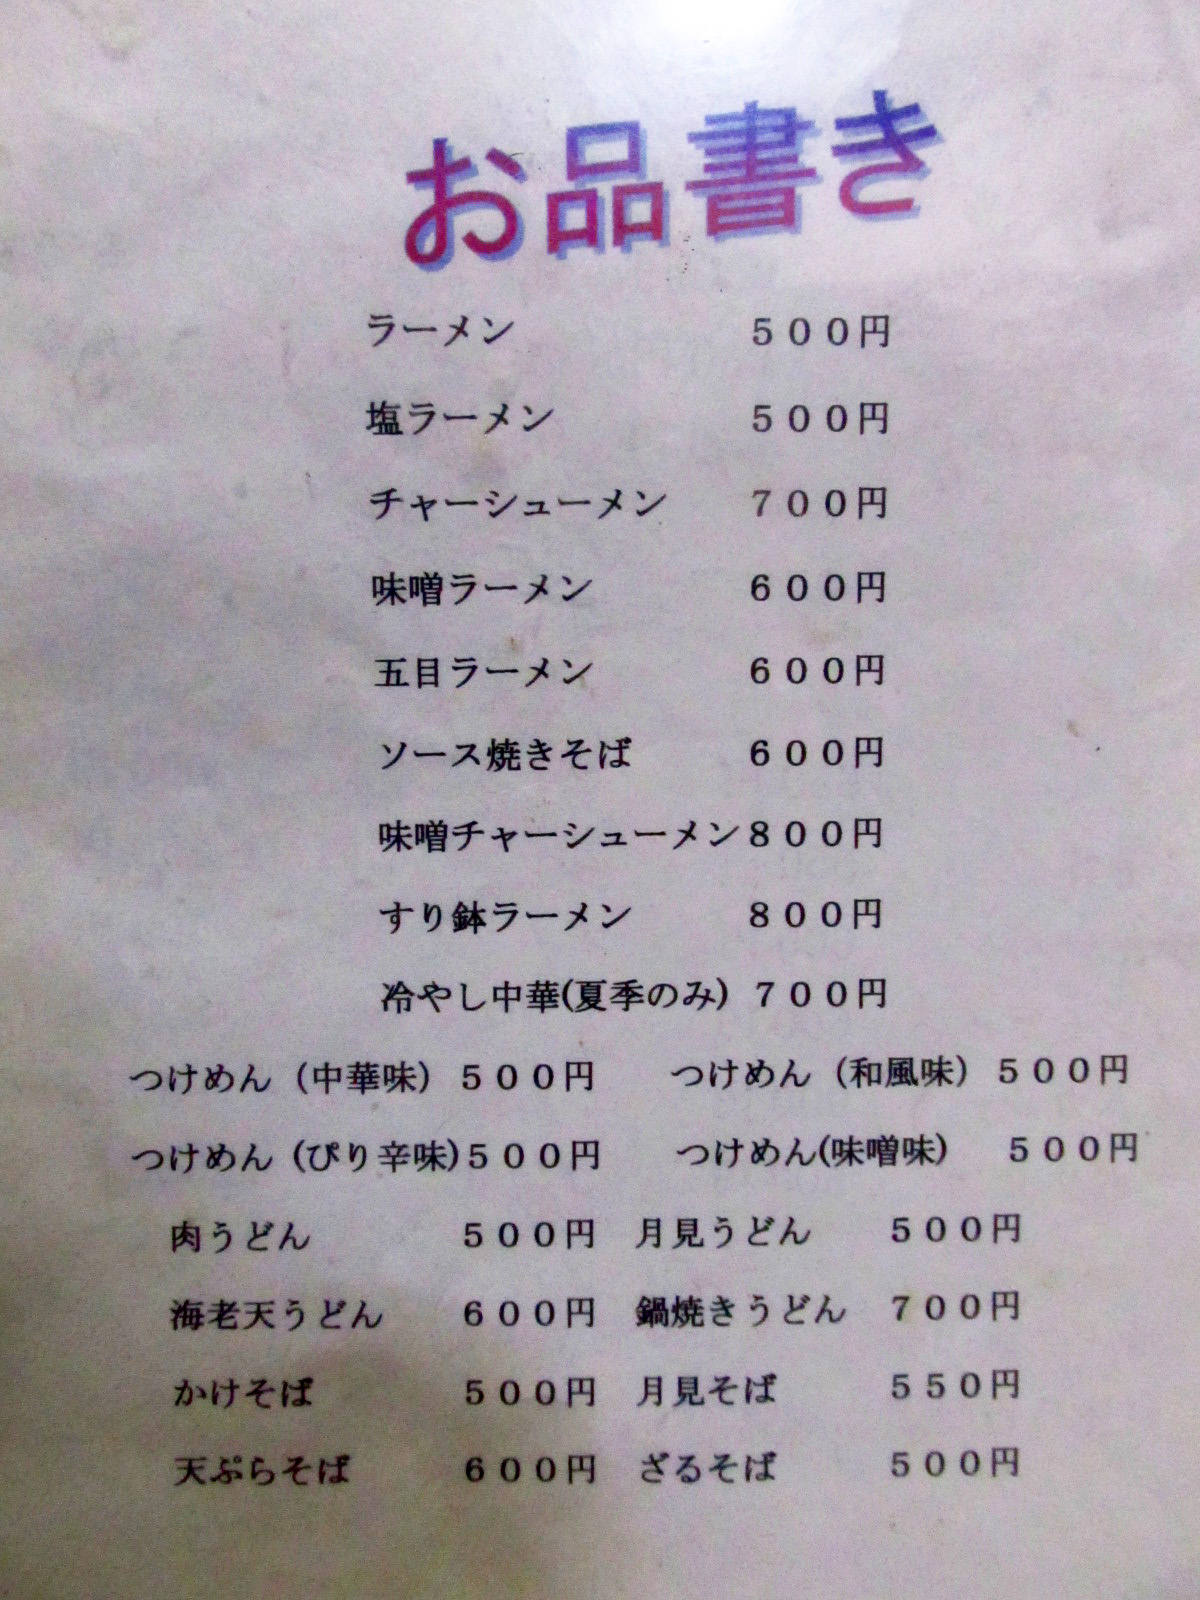 お品書き
ラーメン ５００円
塩ラーメン ５００円
チャーシューメン ７００円
味噌ラーメン ６００円
五目ラーメン ６００円
ソース焼きそば ６００円
味噌チャーシューメン８００円
すり鉢ラーメン ８００円
冷やし中華(夏季のみ) ７００円
つけめん（中華味）５００円 つけめん（和風味）５００円
つけめん (ぴり辛味)５００円 つけめん(味噌味) ５００円
肉うどん ５００円 月見うどん ５００円
海老天うどん ６００円 鍋焼きうどん ７００円
かけそば ５００円 月見そば ５５０円
天ぷらそば ６００円 ざるそば ５００円